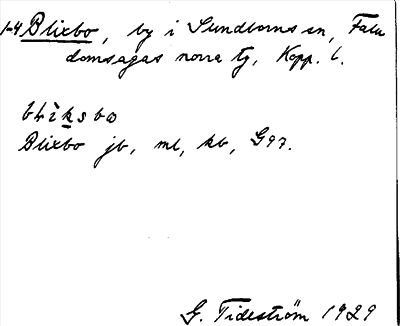 1-4 Blixbo, by i Sundborns sn, Falu
domsagas norra tg, Kopp. l.
blìksbω
Blixbo jb, ml, kb, G97.
G. Tideström 1929